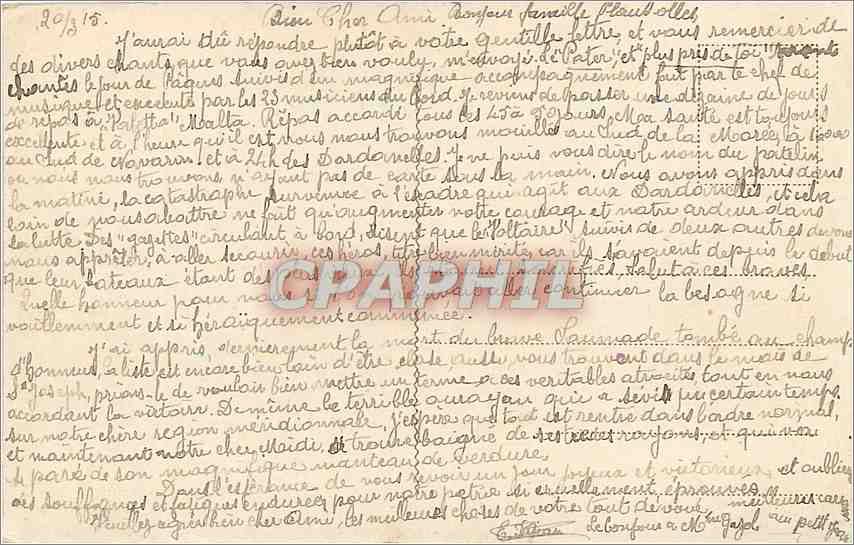 20/3 15. Bien Cher Ami Bonjour famille
J'aurai dû répondre plutôt à votre gentille lettre, et vous remercier de
des divers chants que vous avez bien voulu m'envoyer. Le "Pater" et "plus pris de toi" seront
chantés le jour de Pâques suivis d'un magnifique accompagnement fait par le chef de
musique et executé par les 23 musiciens du bord. Je reviens de passer une dizaine de jours
de repos à "Valetta" Malta. Repos accordé tous les 45 à 50 jours. Ma santé est toujours
excellente et à l'heure qu'il est nous nous trouvons mouillés au sud de la Morée, à
au sud de Navarin et à 24h des Dardanelles. Je ne puis vous dire le nom du patelin
où nous nous trouvons, n'ayant pas de carte sous la main. Nous avons appris dans
la matiné, la catastrophe survenue à l'escadre qui agit aux Dardanelles, et cela
loin de nous abattre ne fait qu'augmenter notre courage et notre ardeur dans
la lutte. Des "gazettes" circulant à bord, disent que le "Voltaire" suivis de deux autres devons
nous apprêter, à aller secourir ces héros, bien mérité car ils savaient depuis le début
que leur bateaux étant des salut à ces braves
Quelle honneur pour nous aller continuer la besogne si
vaillemment et si héroïquement commencée.
J'ai appris, dernièrement la mort du brave Saumade tombé au champ
d'honneur, la liste est encore bien loin d'être close, aussi, nous trouvant dans le mois de
St Joseph, prions-le de vouloir bien mettre un terme à ces veritables atrocités, tout en nous
accordant la victoire. De même le terrible qui a sévit un certain temps
sur notre chère region méridionnale, j'espère que tout est rentré dans l'ordre normal,
et maintenant notre cher Midi, se trouve baigné de ses rayons, et qui va
se paré de son magnifique manteau de verdure.
Dans l'espérance de vous revoir un jour joyeux et victorieux, et oublier
ces souffrances et fatigues endurées pour notre patrie si cruellement éprouvée,
Veuillez agréer bien cher Ami, les meilleures choses de votre tout dévoué
Le bonjour à Mme au petit
CPAPHIL